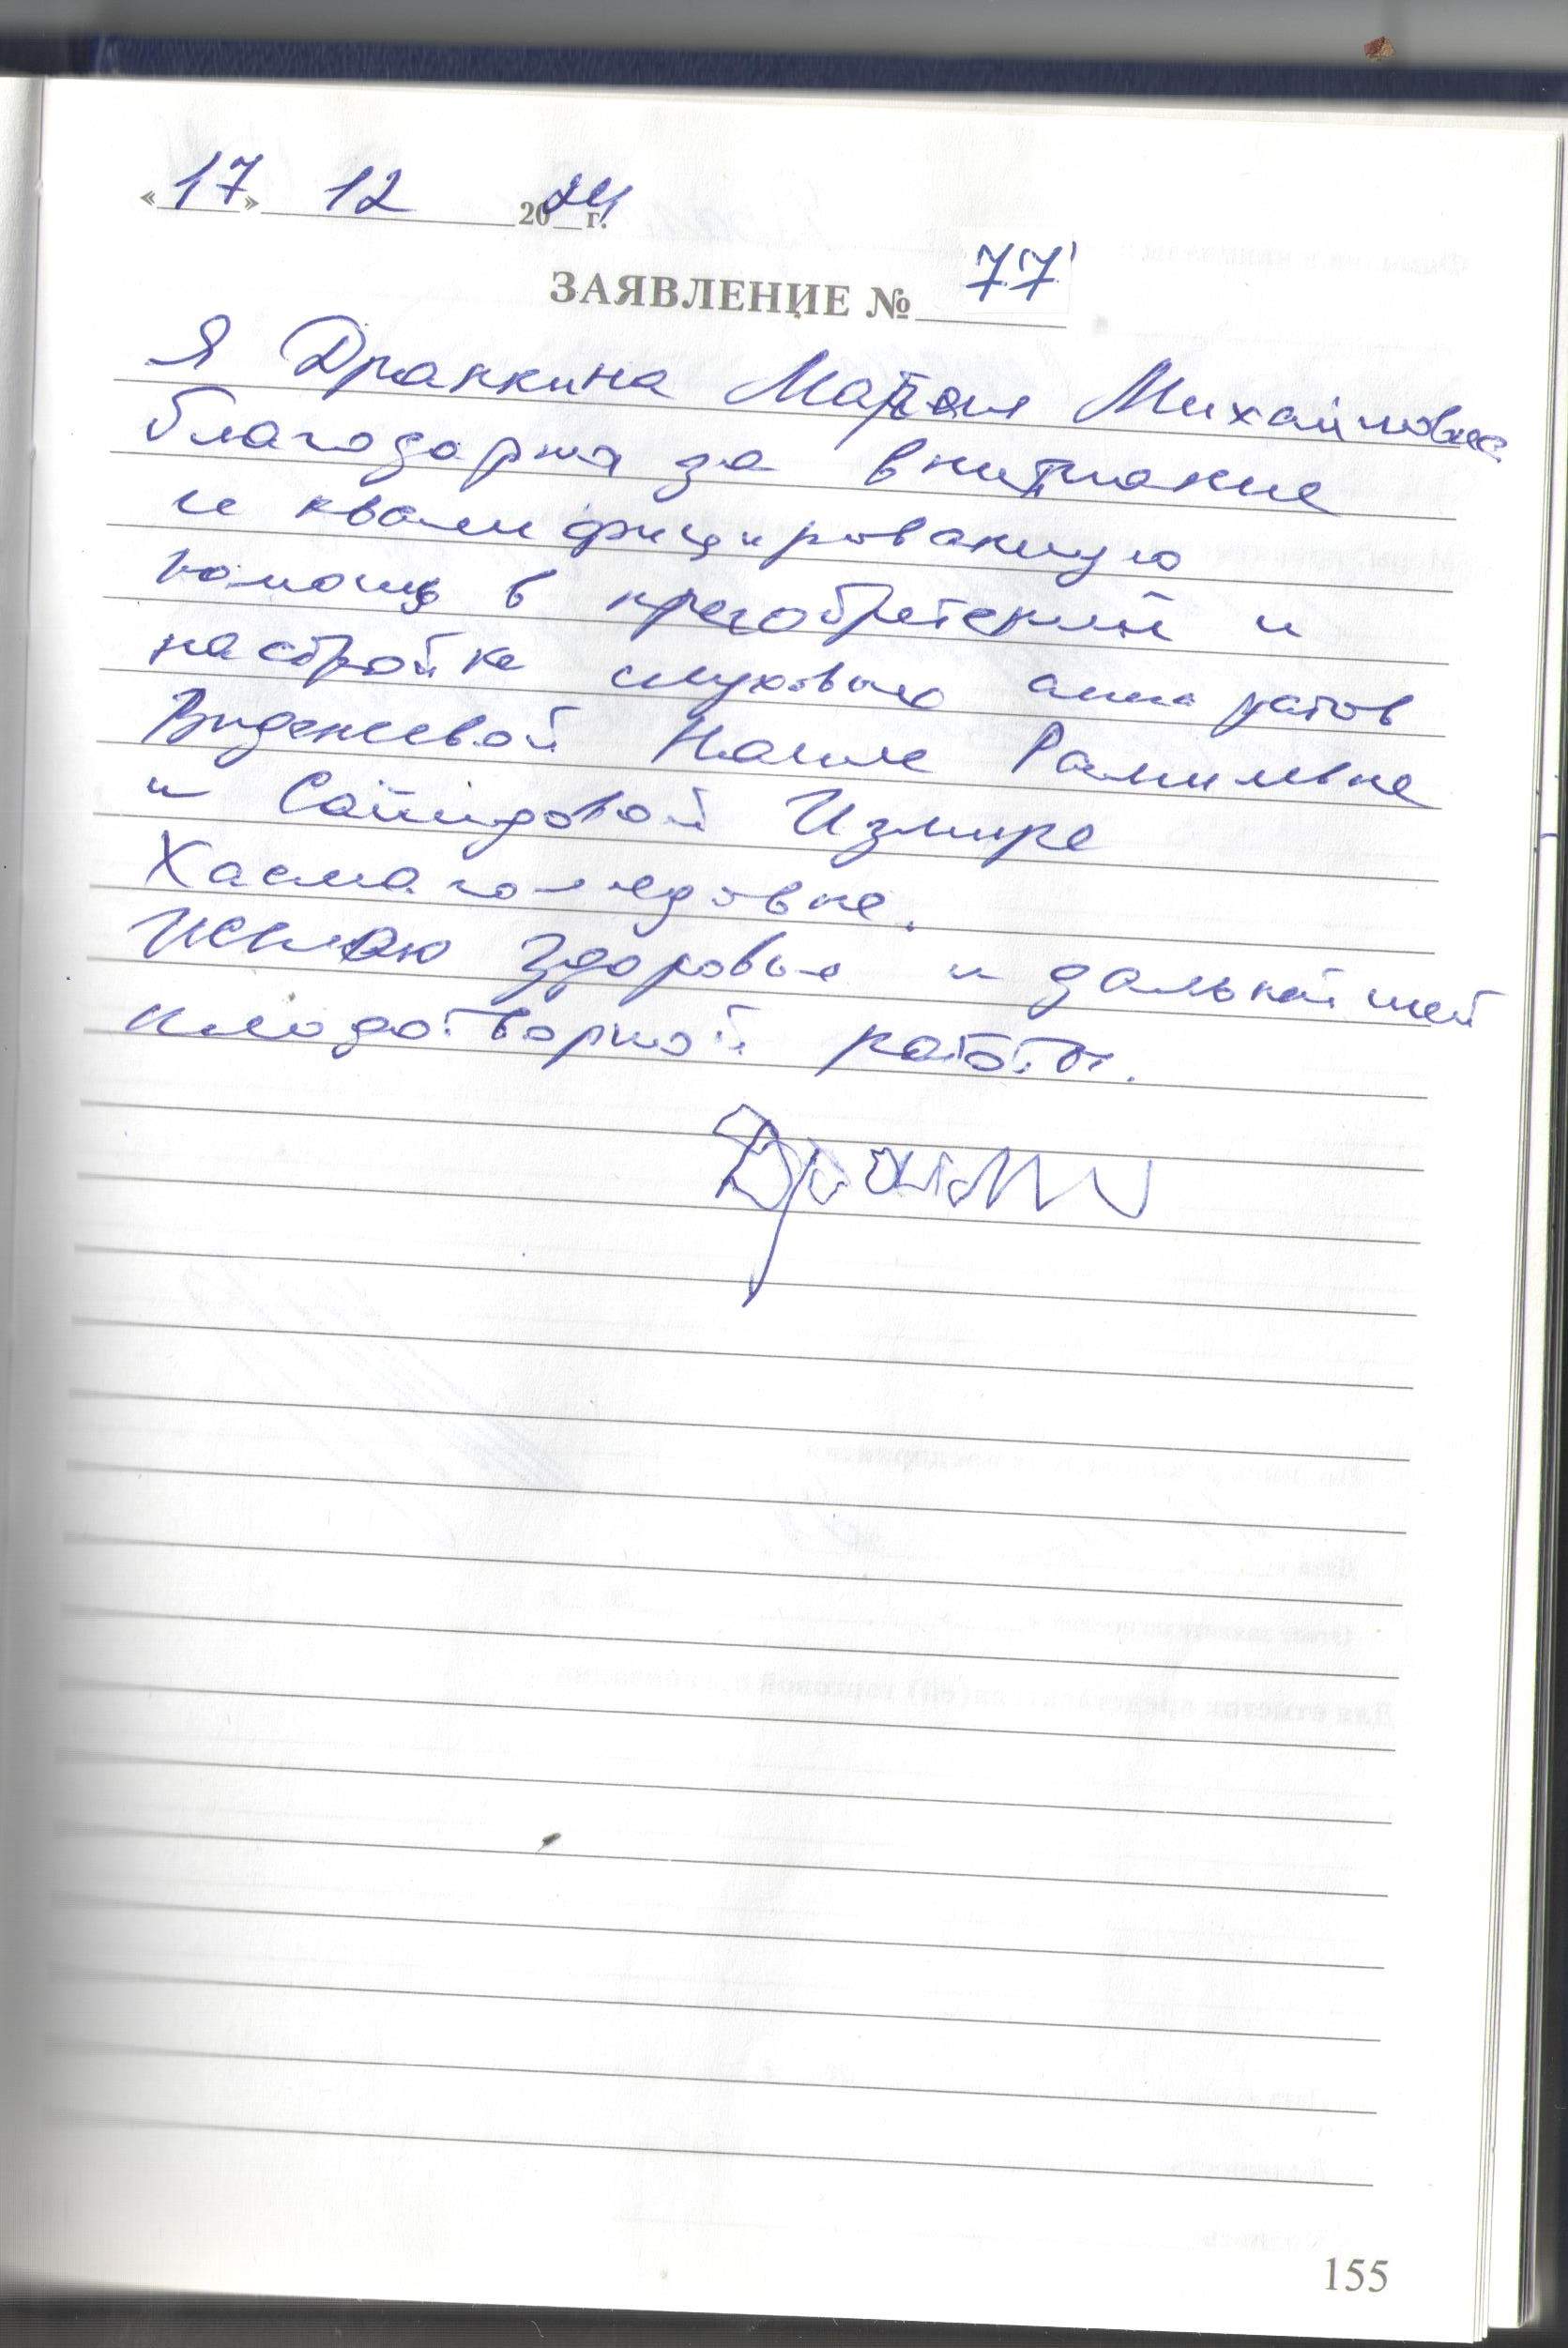 «17» 12 2024 г.
ЗАЯВЛЕНИЕ № 77
Я Драккина Мария Михайловна
благодарна за внимание
и квалифицированную
помощь в преобретений и
настройке слуховых аппаратов
Виденеевой Наиле Рамилевне
и Саидовой Измире
Хасмагомедовне.
Желаю здоровья и дальнейшей
плодотворной работы.
155